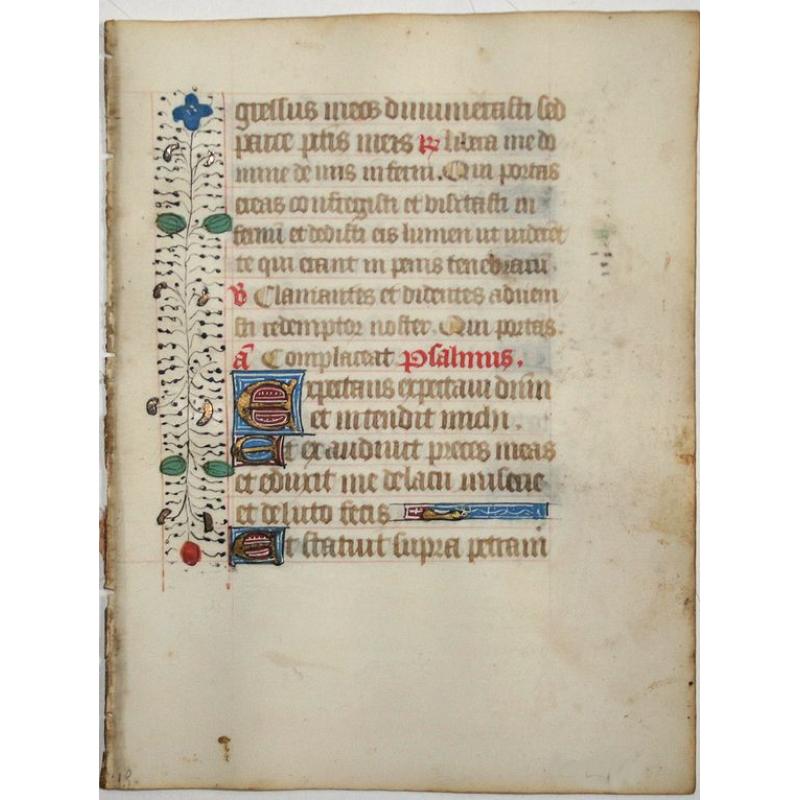 gressus meos dinumerasti sed
parce pctis meis R libera me do
mine de uiis inferni. Qui portas
ereas confregisti et visitasti in
fernu et dedisti eis lumen ut uideret
te qui erant in penis tenebraru.
V Clamantes et dicentes aduem
sti redemptor noster. Qui portas.
a Complaceat Psalmus.
Expectans expectaui dnm
et intendit michi.
Et exaudiuit preces meas
et eduxit me de lacu miserie
et de luto fecis
Et statuit supra petram